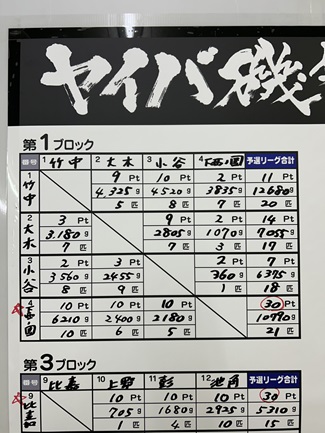 ヤイバ磯
第1ブロック
番号 1 竹中 2 大木 3 小谷 4 予選リーグ合計
1 竹中 9 Pt 10 Pt 2 Pt 11 Pt
4,325 g 4520 g 3835 g 12680 g
5 匹 8 匹 7 匹 20 匹
2 大木 3 Pt 9 Pt 2 Pt 14 Pt
3.180 g 2805 g 1070 g 7055 g
7 匹 7 匹 3 匹 17 匹
3 小谷 2 Pt 3 Pt 2 Pt 7 Pt
3560 g 2455 g 360 g 6375 g
8 匹 9 匹 1 匹 18 匹
4 10 Pt 10 Pt 10 Pt 30 Pt
6210 g 2400 g 2180 g 10790 g
10 匹 6 匹 5 匹 21 匹
第3ブロック
番号 9 比嘉 10 上野 11 彭 12 池角 予選リーグ合計
9 比嘉 10 Pt 10 Pt 10 Pt 30 Pt
705 g 1680 g 2925 g 5310 g
1 匹 4 匹 10 匹 15 匹